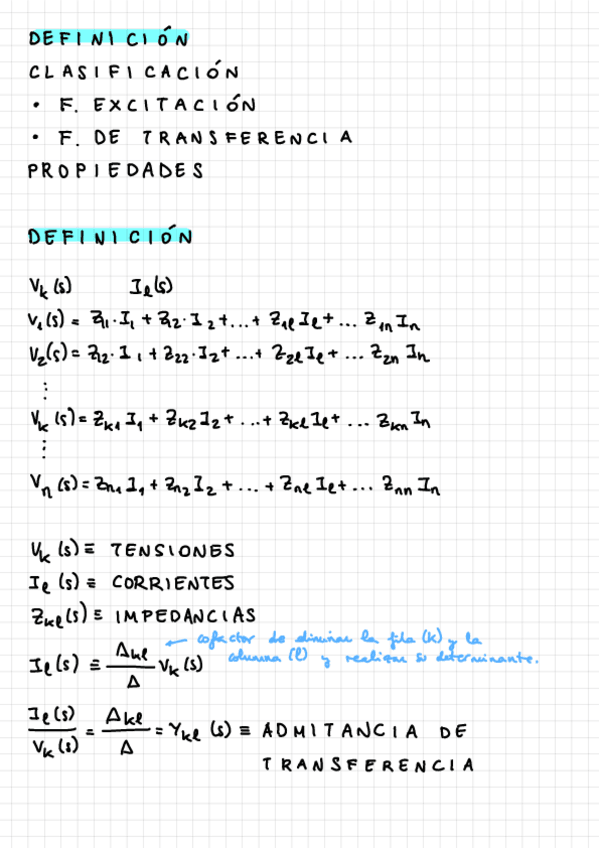 DEFINICIÓN
CLASIFICACIÓN
• F. EXCITACIÓN
• F. DE TRANSFERENCIA
PROPIEDADES
DEFINICIÓN
Vk (s) Iℓ(s)
V1(s) = Z11·I1 + Z12·I2 + ... + Z1ℓ Iℓ + ... Z1n In
V2(s) = Z12·I1 + Z22·I2 + ... + Z2ℓ Iℓ + ... Z2n In
⋮
Vk (s) = Zk1 I1 + Zk2 I2 + ... + Zkℓ Iℓ + ... Zkn In
⋮
Vn (s) = Zn1 I1 + Zn2 I2 + ... + Znℓ Iℓ + ... Znn In
Vk (s) ≡ TENSIONES
Iℓ (s) ≡ CORRIENTES
Zkℓ(s) ≡ IMPEDANCIAS
← cofactor de eliminar la fila (k) y la
columna (ℓ) y realizar su determinante.
Iℓ(s) ≡ Δkℓ/Δ Vk (s)
Iℓ(s)/Vk(s) = Δkℓ/Δ = Ykℓ (s) ≡ ADMITANCIA DE
TRANSFERENCIA